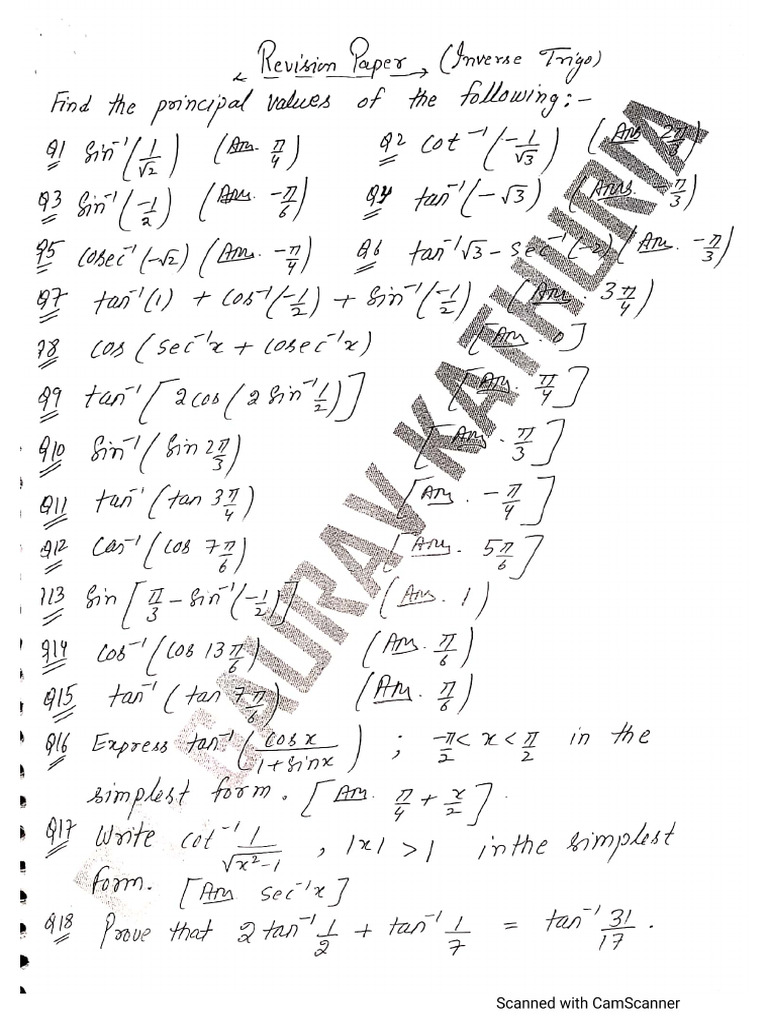 Revision Paper (Inverse Trigo)
Find the principal values of the following:-
Q1 Sin⁻¹(1/√2) (Ans. π/4) Q2 cot⁻¹(-1/√3) (Ans 2π/3)
Q3 Sin⁻¹(-1/2) (Ans. -π/6) Q4 tan⁻¹(-√3) (Ans. -π/3)
Q5 cosec⁻¹(-√2) (Ans. -π/4) Q6 tan⁻¹√3 - Sec⁻¹(-2) (Ans. -π/3)
Q7 tan⁻¹(1) + Cos⁻¹(-1/2) + Sin⁻¹(-1/2) (Ans. 3π/4)
Q8 cos(sec⁻¹x + cosec⁻¹x) [Ans. 0]
Q9 tan⁻¹[2cos(2 Sin⁻¹ 1/2)] [Ans. π/4]
Q10 Sin⁻¹(Sin 2π/3) [Ans. π/3]
Q11 tan⁻¹(tan 3π/4) [Ans. -π/4]
Q12 Cos⁻¹(cos 7π/6) [Ans. 5π/6]
Q13 Sin[π/3 - Sin⁻¹(-1/2)] (Ans. 1)
Q14 Cos⁻¹(Cos 13π/6) (Ans. π/6)
Q15 tan⁻¹(tan 7π/6) (Ans. π/6)
Q16 Express tan⁻¹(cosx/1+sinx) ; -π/2 < x < π/2 in the
simplest form. [Ans. π/4 + x/2].
Q17 Write cot⁻¹ 1/√x²-1 , |x| > 1 in the simplest
form. [Ans sec⁻¹x]
Q18 Prove that 2 tan⁻¹ 1/2 + tan⁻¹ 1/7 = tan⁻¹ 31/17.
GAURAV KATHURIA
Scanned with CamScanner